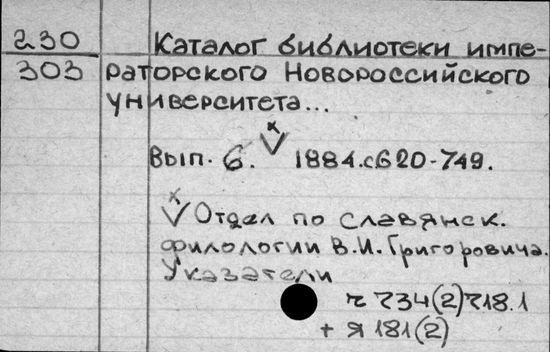 230
303
Каталог библиотеки импе-
раторского Новороссийского
университета...
Вып. 6. V 1884. с 620-749.
V Отдел по славянск.
филологии В.И. Григоровича.
Указатели
ч 734(2)718.1
+ Я 181(2)